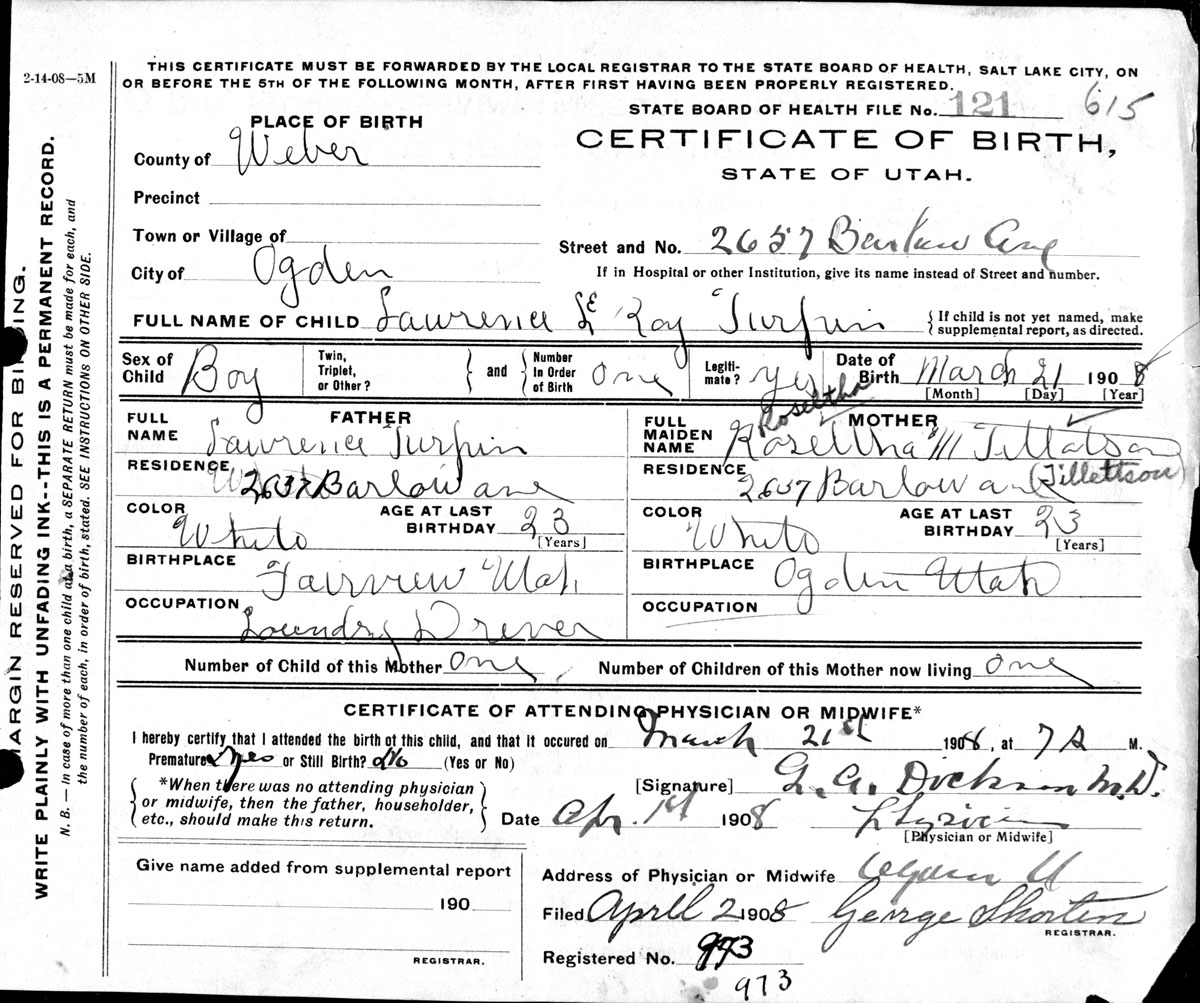 2-14-08—5M
THIS CERTIFICATE MUST BE FORWARDED BY THE LOCAL REGISTRAR TO THE STATE BOARD OF HEALTH, SALT LAKE CITY, ON
OR BEFORE THE 5TH OF THE FOLLOWING MONTH, AFTER FIRST HAVING BEEN PROPERLY REGISTERED.
STATE BOARD OF HEALTH FILE No. 121 615
PLACE OF BIRTH
CERTIFICATE OF BIRTH,
STATE OF UTAH.
County of Weber
Precinct
Town or Village of
Street and No. 2657 Barlow Ave
City of Ogden
If in Hospital or other Institution, give its name instead of Street and number.
FULL NAME OF CHILD Lawrence Le Roy Turpin
{ If child is not yet named, make
supplemental report, as directed.
Sex of Child Boy
Twin, Triplet, or Other?
} and {
Number In Order of Birth One
Legiti-mate? yes
Date of Birth March 21 1908
[Month] [Day] [Year]
FATHER
FULL NAME Lawrence Turpin
RESIDENCE 2637 Barlow ave
COLOR White
AGE AT LAST BIRTHDAY 23
[Years]
BIRTHPLACE Fairview Utah
OCCUPATION Laundry Drever
MOTHER
Roseltha
FULL MAIDEN NAME Roseltha M Tillatson
(Tillettson)
RESIDENCE 2657 Barlow ave
COLOR White
AGE AT LAST BIRTHDAY 23
[Years]
BIRTHPLACE Ogden Utah
OCCUPATION
Number of Child of this Mother One
Number of Children of this Mother now living One
CERTIFICATE OF ATTENDING PHYSICIAN OR MIDWIFE*
I hereby certify that I attended the birth of this child, and that it occured on March 21st 1908, at 7 A M.
Premature yes or Still Birth? No (Yes or No)
{ *When there was no attending physician
or midwife, then the father, householder,
etc., should make this return. }
[Signature] G. A. Dickson M.D.
Date Apr. 1st 1908
[Physician or Midwife]
Give name added from supplemental report
190
REGISTRAR.
Address of Physician or Midwife Ogden U
Filed April 2 1908 George Shorten
REGISTRAR.
Registered No. 973
973
MARGIN RESERVED FOR BINDING.
WRITE PLAINLY WITH UNFADING INK--THIS IS A PERMANENT RECORD.
N. B. — In case of more than one child at a birth, a SEPARATE RETURN must be made for each, and
the number of each, in order of birth, stated. SEE INSTRUCTIONS ON OTHER SIDE.